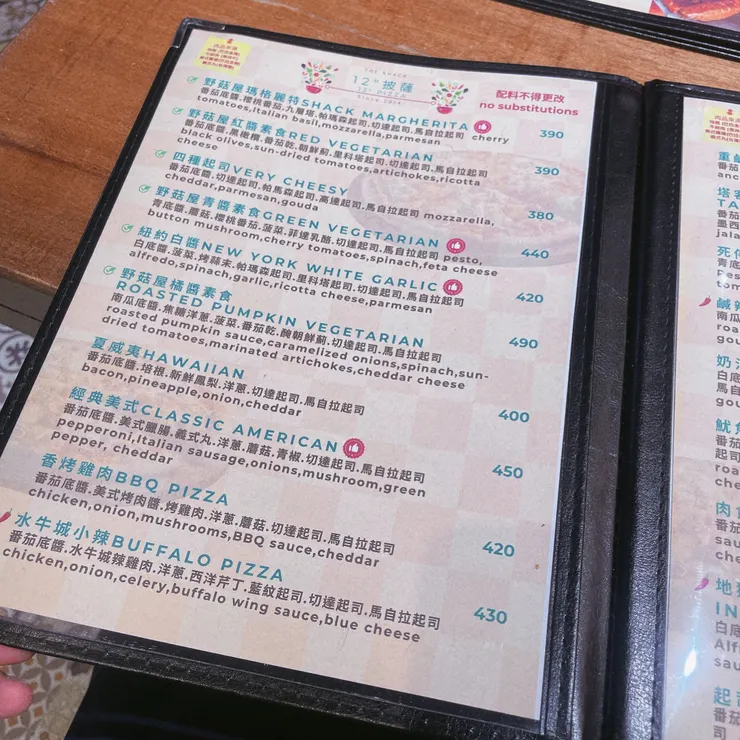 THE SHACK
12" 披薩
12" PIZZA
Since 2014
配料不得更改
no substitutions
野菇屋瑪格麗特SHACK MARGHERITA
番茄底醬.櫻桃番茄.九層塔.帕瑪森起司.切達起司.馬自拉起司 cherry
tomatoes,italian basil,mozzarella,parmesan
390
野菇屋紅醬素食RED VEGETARIAN
番茄底醬.黑橄欖.番茄乾.朝鮮薊.里科塔起司.切達起司.馬自拉起司
black olives,sun-dried tomatoes,artichokes,ricotta
cheese
390
四種起司VERY CHEESY
番茄底醬.切達起司.帕馬森起司.高達起司.馬自拉起司 mozzarella,
cheddar,parmesan,gouda
380
野菇屋青醬素食GREEN VEGETARIAN
青底醬.蘑菇.櫻桃番茄.菠菜.菲達乳酪.切達起司.馬自拉起司 pesto,
button mushroom,cherry tomatoes,spinach,feta cheese
440
紐約白醬NEW YORK WHITE GARLIC
白底醬.菠菜.烤蒜末.帕瑪森起司.里科塔起司.切達起司.馬自拉起司
alfredo,spinach,garlic,ricotta cheese,parmesan
420
野菇屋橘醬素食
ROASTED PUMPKIN VEGETARIAN
南瓜底醬.焦糖洋蔥.菠菜.番茄乾.醃朝鮮薊.切達起司.馬自拉起司
roasted pumpkin sauce,caramelized onions,spinach,sun-
dried tomatoes,marinated artichokes,cheddar cheese
490
夏威夷HAWAIIAN
番茄底醬.培根.新鮮鳳梨.洋蔥.切達起司.馬自拉起司
bacon,pineapple,onion,cheddar
400
經典美式CLASSIC AMERICAN
番茄底醬.美式臘腸.義式丸.洋蔥.蘑菇.青椒.切達起司.馬自拉起司
pepperoni,Italian sausage,onions,mushroom,green
pepper, cheddar
450
香烤雞肉BBQ PIZZA
番茄底醬.美式烤肉醬.烤雞肉.洋蔥.蘑菇.切達起司.馬自拉起司
chicken,onion,mushrooms,BBQ sauce,cheddar
420
水牛城小辣BUFFALO PIZZA
番茄底醬.水牛城辣雞肉.洋蔥.西洋芹丁.藍紋起司.切達起司.馬自拉起司
chicken,onion,celery,buffalo wing sauce,blue cheese
430
重
番茄
anc
塔
TA
墨西
jala
死
青底
Pes
tom
鹹
南瓜
roas
gou
奶
番茄
gou
魷
番茄
起司
roa
che
肉
番茄
sau
che
地
IN
白底
Alf
sau
起
番
司